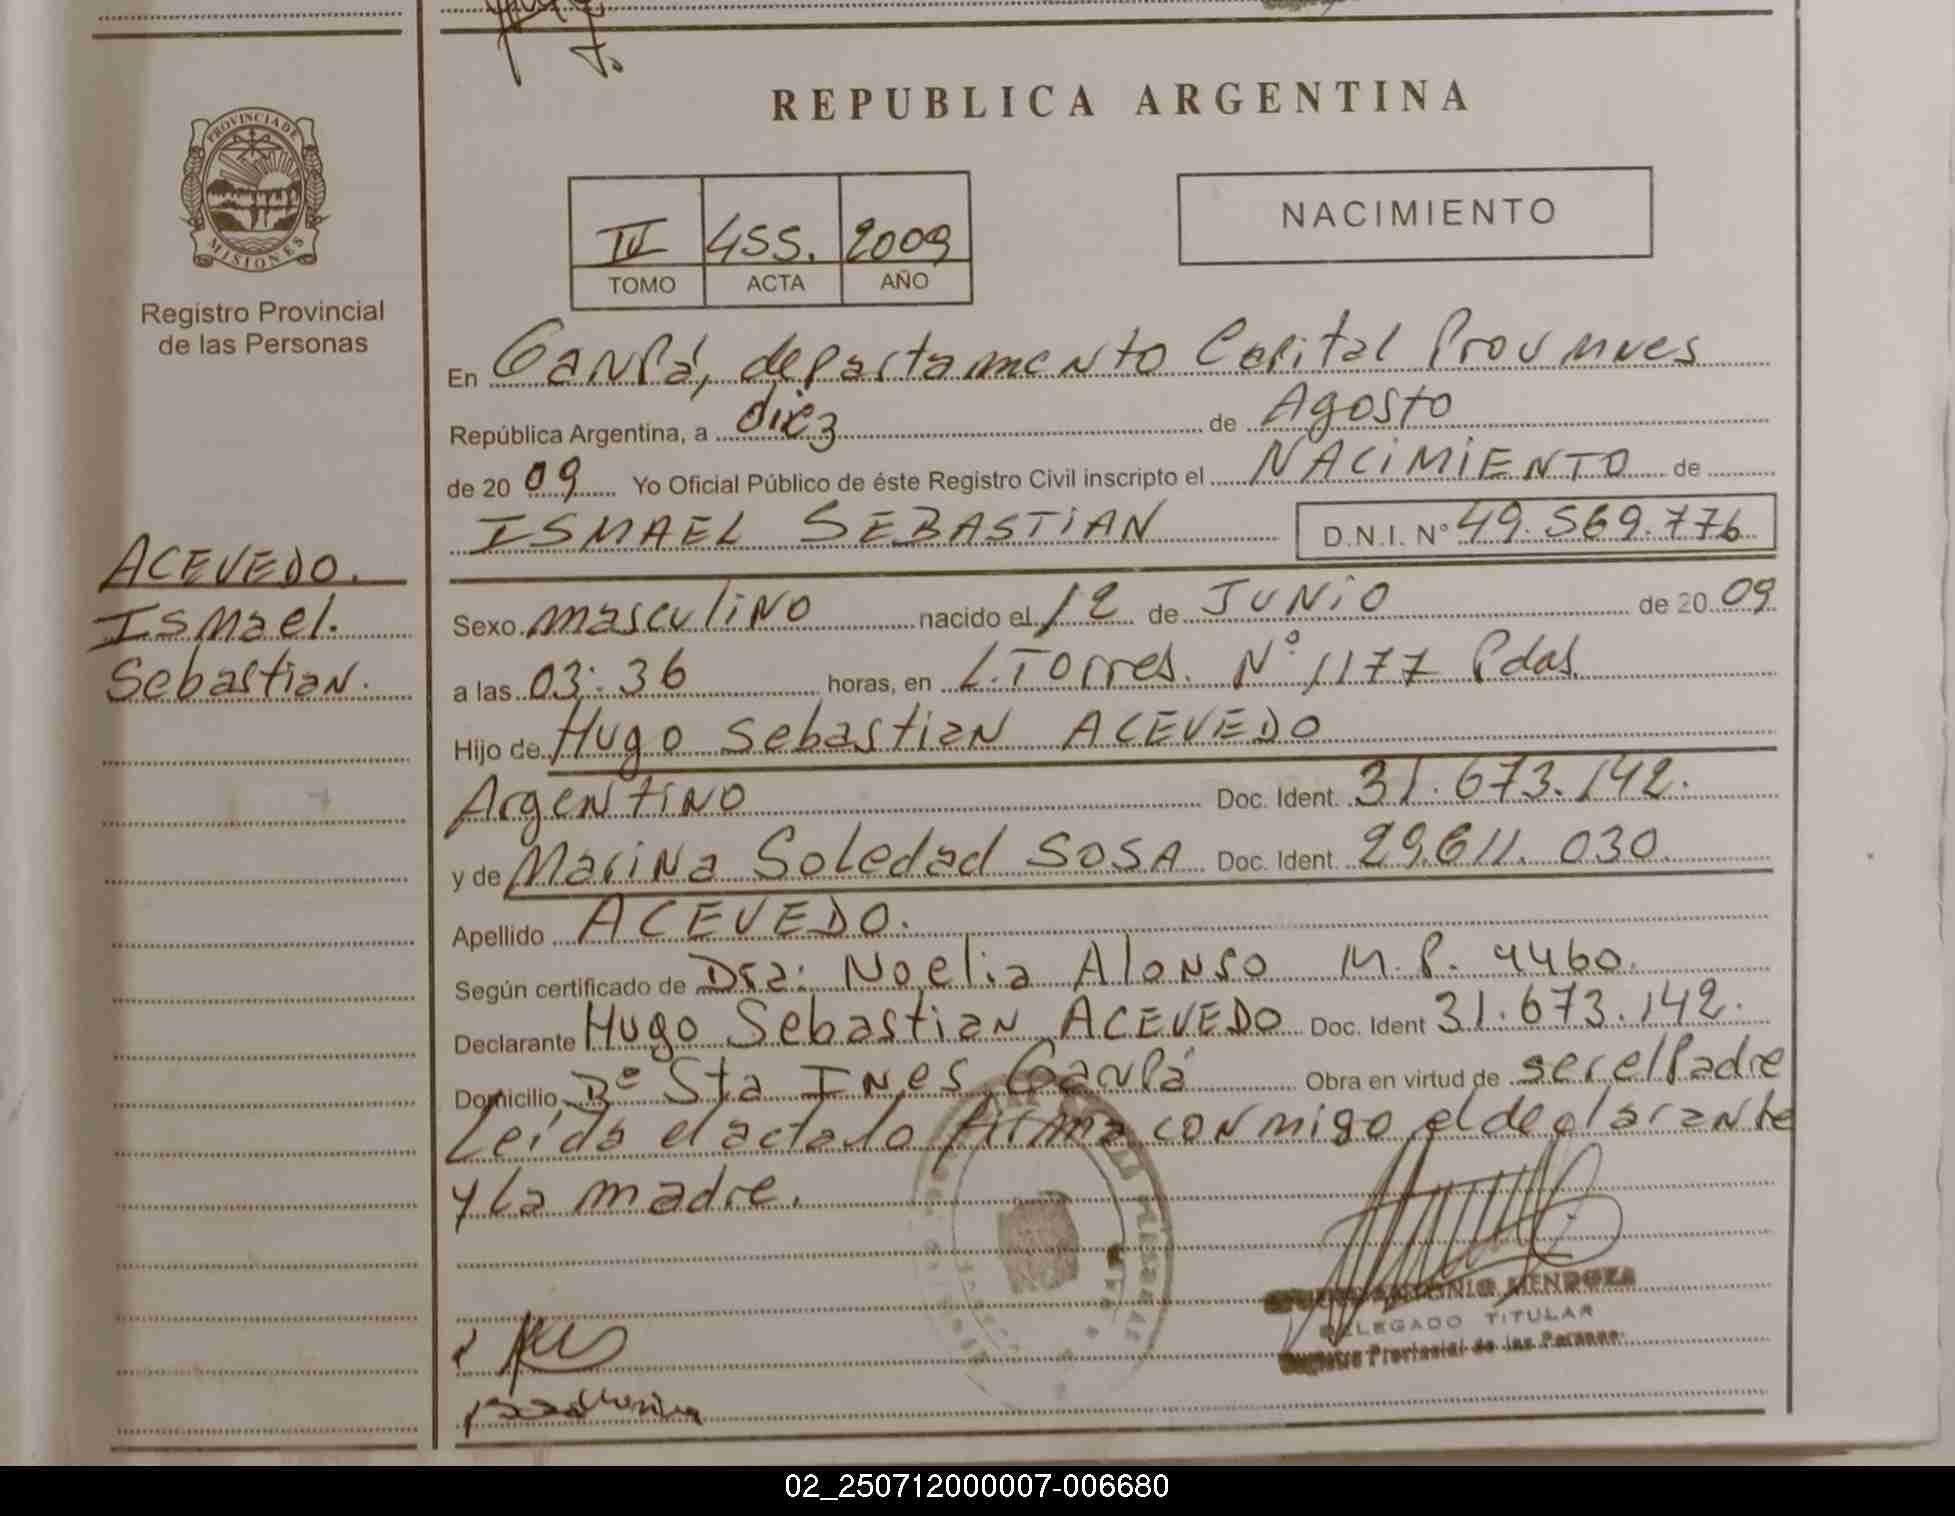 REPUBLICA ARGENTINA
PROVINCIA DE
MISIONES
Registro Provincial
de las Personas
IV 455. 2009
TOMO ACTA AÑO
NACIMIENTO
En Garupá, departamento Capital Prov Mnes
República Argentina, a diez de Agosto
de 20 09 Yo Oficial Público de éste Registro Civil inscripto el NACIMIENTO de
ISMAEL SEBASTIAN D.N.I. Nº 49.569.776
ACEVEDO.
Ismael.
Sebastian.
Sexo masculino nacido el 12 de JUNIO de 20 09
a las 03:36 horas, en L. Torres. Nº 1177 Pdas.
Hijo de Hugo Sebastian ACEVEDO
Argentino Doc. Ident. 31.673.142.
y de Marina Soledad SOSA Doc. Ident. 29.611.030.
Apellido ACEVEDO.
Según certificado de Dra: Noelia Alonso M.P. 4460.
Declarante Hugo Sebastian ACEVEDO Doc. Ident 31.673.142.
Domicilio Bº Sta INes Garupá Obra en virtud de ser el Padre
Leída el acta la firma conmigo el declarante
y la madre.
ANTONIO MENDOZA
DELEGADO TITULAR
Registro Provincial de las Personas
02_250712000007-006680